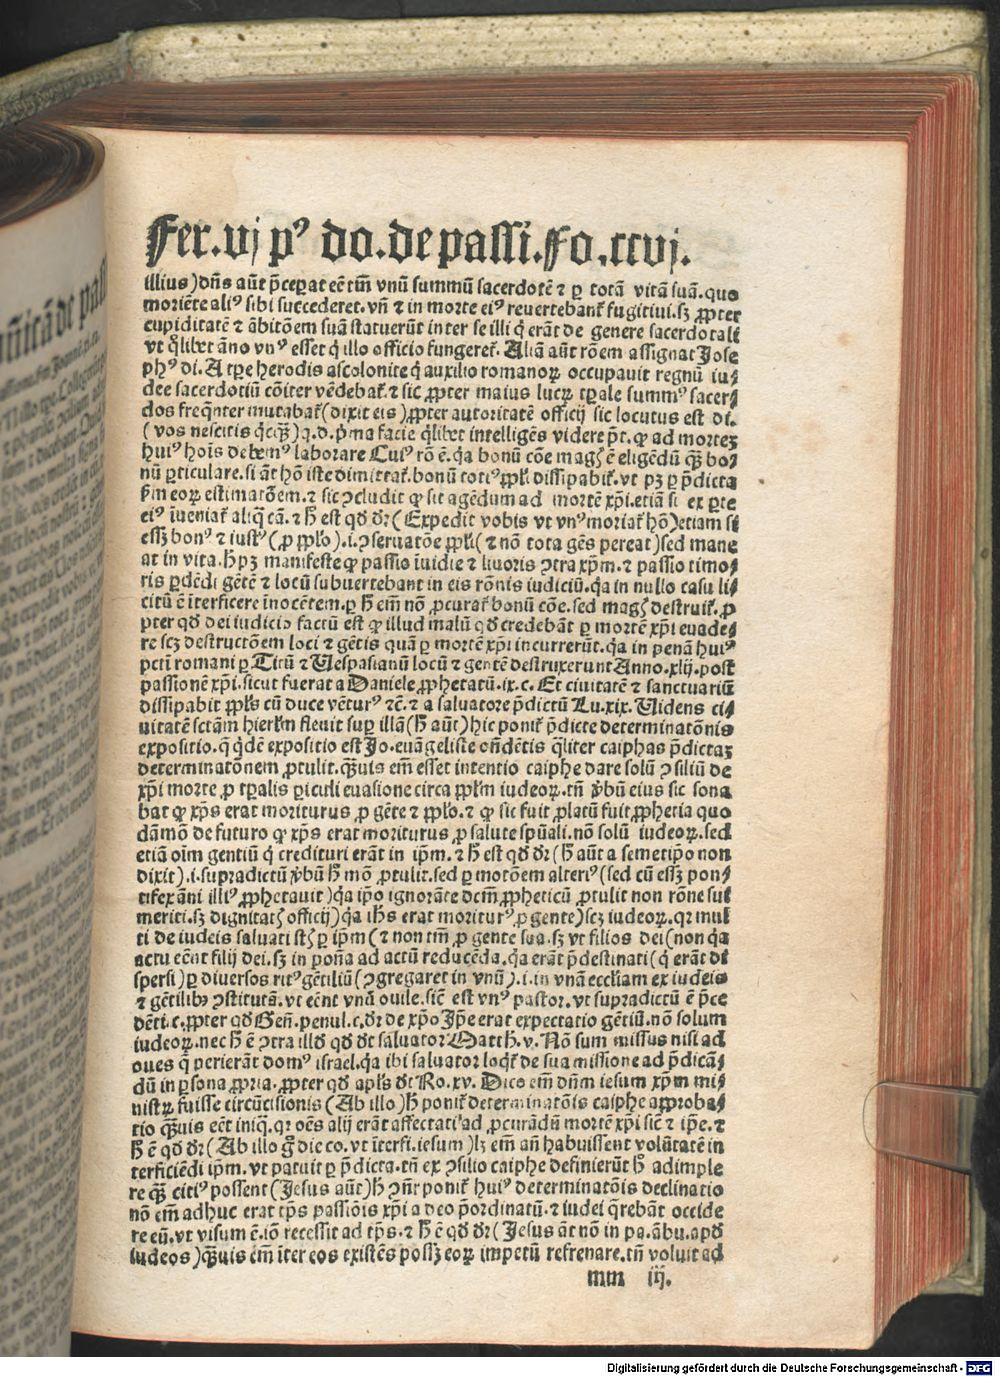 Fer.vj pꝰ do.de passi.Fo.ccvj.
illius)dn̄s aūt p̄ceperat eē tm̄ vnū summū sacerdotē ⁊ ꝑ totā vitā suā.quo
moriēte aliꝰ sibi succederet.vn̄ ⁊ in morte eiꝰ reuertebant̄ fugitiui.sꝫ ꝓpter
cupiditatē ⁊ ābitōem suā statuerūt inter se illi q̄ erāt de genere sacerdotali
vt q̄libet āno vnꝰ esset q̄ illo officio fungeret̄. Aliā aūt rōem assignat Jose
phꝰ di. A tꝑe herodis ascolonite q̄ auxilio romanoꝝ occupauit regnū iu⸗
dee sacerdotiū cōiter vēdebat̄.⁊ sic ꝓpter maius lucꝝ tꝑale summꝰ sacer⸗
dos freq̄nter mutabat̄(dixit eis)ꝓpter autoritatē officij sic locutus est di.
(vos nescitis q̄cq̄ꝫ)q.d.p̄ma facie q̄libet intelligēs videre p̄t.ꝙ ad morteꝫ
huiꝰ hoīs debemꝰ laborare Cuiꝰ rō ē.q̄a bonū cōe magꝭ ē eligēdū q̄ꝫ bo⸗
nū ꝑticulare.si āt hō iste dimittat̄.bonū totiꝰ ꝓpl̄i dissipabit̄.vt pꝫ ꝑ p̄dicta
fm̄ eoꝝ estimatōem.⁊ sic ↄcludit ꝙ sit agēdum ad mortē xp̄i.etiā si ex ꝑte
eiꝰ īueniat̄ aliq̄ cā.⁊ h̄ est qd̄ dr̄(Expedit vobis vt vnꝰ moriat̄ hō)etiam si
essꝫ bonꝰ ⁊ iustꝰ(ꝓ ꝓpl̄o).i.ↄseruatōe ꝓpl̄i(⁊ nō tota gēs pereat)sed mane
at in vita.hꝫ manifeste ꝙ passio īuidie ⁊ liuoris ↄtra xp̄m.⁊ passio timo⸗
ris ꝑdēdi gētē ⁊ locū subuertebant in eis rōnis iudiciū.q̄a in nullo casu li⸗
citū ē īterficere īnocētem.ꝑ h̄ em̄ nō ꝓcurat̄ bonū cōe.sed magꝭ destruit̄.ꝓ
pter qd̄ dei iudicio factū est ꝙ illud malū qd̄ credebāt ꝑ mortē xp̄i euade⸗
re scꝫ destructōem loci ⁊ gētis quā ꝑ mortē xp̄i incurrerūt.q̄a in penā huiꝰ
pcti romani ꝑ Titū ⁊ Vespasianū locū ⁊ gentē destruxerunt Anno.xlij.post
passionē xp̄i.sicut fuerat a Daniele ꝓphetatū.ix.c. Et ciuitatē ⁊ sanctuariū
dissipabit ꝓpl̄s cū duce vēturꝰ ⁊c̄.⁊ a saluatore p̄dictū Lu.xix. Videns ci⸗
uitatē sctām hierl̄m fleuit sup illā(h̄ aūt)hic ponit̄ p̄dicte determinatōnis
expositio.q̄ q̄dē expositio est Jo.euāgeliste on̄dētis q̄liter caiphas p̄dictaꝫ
determinatōnem ꝓtulit.q̄ꝫuis em̄ esset intentio caiphe dare solū ↄsiliū de
xp̄i morte ꝓ tꝑalis ꝑiculi euasione circa ꝓpl̄m iudeoꝝ.tn̄ v̄bū eius sic sona
bat ꝙ xp̄s erat moriturus ꝓ gēte ⁊ ꝓpl̄o.⁊ ꝙ sic fuit ꝓlatū fuit ꝓphetia quo
dāmō de futuro ꝙ xp̄s erat moriturus ꝓ salute spūali.nō solū iudeoꝝ.sed
etiā oīm gentiū q̄ credituri erāt in ip̄m.⁊ h̄ est qd̄ dr̄(h̄ aūt a semetip̄o non
dixit).i.supradictū v̄bū h̄ mō ꝓtulit.sed ꝑ motōem alteriꝰ(sed cū essꝫ pon⸗
tifex āni illiꝰ ꝓphetauit)q̄a ip̄o ignorāte dcm̄ ꝓpheticū ꝓtulit non rōne sui
meriti.sꝫ dignitatꝭ officij)q̄a ih̄s erat moriturꝰ ꝓ gente)scꝫ iudeoꝝ.qꝛ mul
ti de iudeis saluati st̄ ꝑ ip̄m(⁊ non tm̄ ꝓ gente sua.sꝫ vt filios dei(non q̄a
actu eēnt filij dei.sꝫ in ꝑsona ad actū reducēda.q̄a erāt p̄destinati(q̄ erāt di
spersi)ꝑ diuersos ritꝰ gētiliū(ↄgregaret in vnū).i.in vnā eccl̄iam ex iudeis
⁊ gētilibꝫ ↄstitutā.vt eēnt vnū ouile.sic̄ est vnꝰ pastor.vt supradictū ē p̄ce
dēti.c.ꝓpter qd̄ Gen̄.penul.c.dr̄ de xp̄o Ip̄e erat expectatio gētiū.nō solum
iudeoꝝ.nec h̄ ē ↄtra illd̄ qd̄ dt̄ saluator Matth̄.v. Nō sum missus nisi ad
oues q̄ perierāt domꝰ israel.q̄a ibi saluator loqt̄ de sua missione ad p̄dicā⸗
dū in ꝑsona ꝓpria.ꝓpter qd̄ apl̄s dt̄ Ro.xv. Dico em̄ dn̄m iesum xp̄m mi⸗
nistꝝ fuisse circūcisionis(Ab illo)h̄ ponit̄ determinatōis caiphe approba⸗
tio q̄ꝫuis eēt iniq̄.qꝛ oēs alij erāt affectati ad ꝓcurādū mortē xp̄i sic̄ ⁊ ip̄e.⁊
h̄ ē qd̄ dr̄(Ab illo g̊ die co.vt īterfi.iesum)lꝫ em̄ an̄ habuissent volūtatē in
terficiēdi ip̄m.vt patuit ꝑ p̄dicta.tn̄ ex ↄsilio caiphe definierūt h̄ adimple
re q̄ꝫ citiꝰ possent(Jesus aūt)h̄ ↄn̄r ponit̄ huiꝰ determinatōis declinatio
nō em̄ adhuc erat tp̄s passiōis xp̄i a deo p̄ordinatū.⁊ iudei q̄rebāt occide
re eū.vt visum ē.iō recessit ad tp̄s.⁊ h̄ ē qd̄ dr̄(Jesus āt nō in pa.ābu.apd̄
iudeos)q̄ꝫuis em̄ īter eos existēs possꝫ eoꝝ impetū refrenare.tn̄ voluit ad
mm iij.
Digitalisierung gefördert durch die Deutsche Forschungsgemeinschaft - DFG